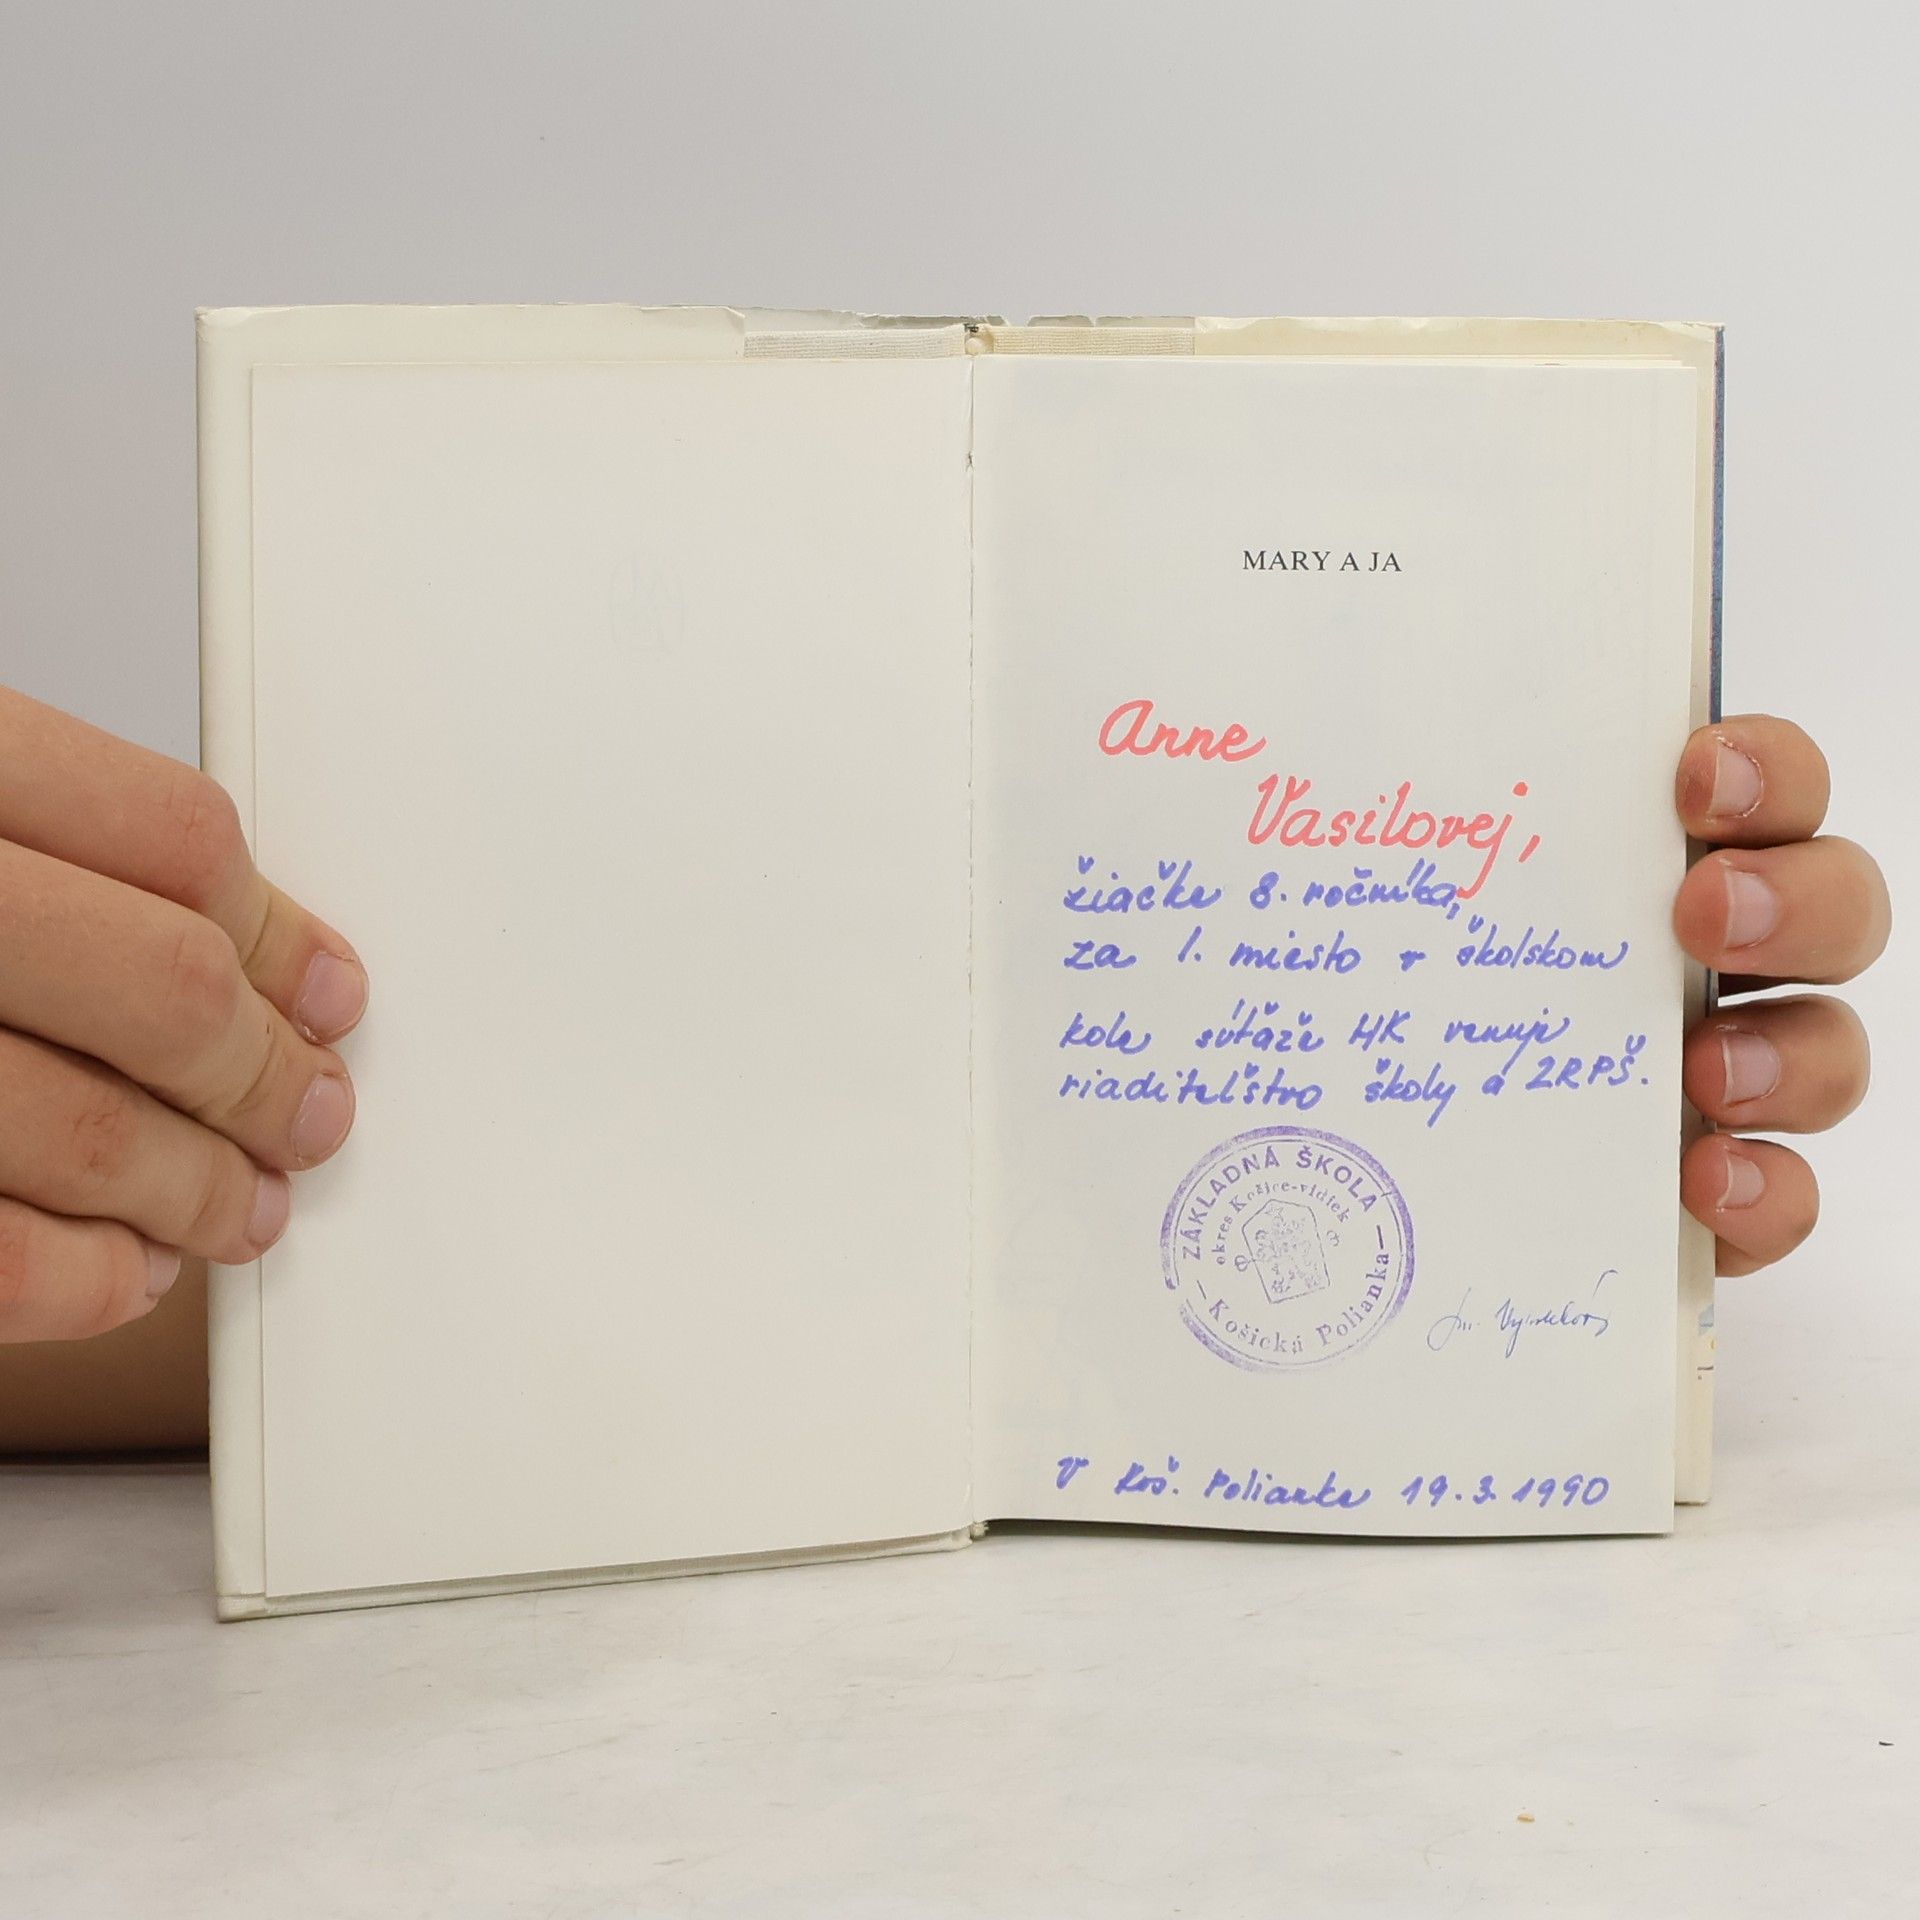 MARY A JA
Anne
Vasilovej,
žiačke 8. ročníka,
za 1. miesto v školskom
kole súťaže HK venuje
riaditeľstvo školy a ZRPŠ.
ZÁKLADNÁ ŠKOLA
okres Košice-vidiek
Košická Polianka
V Koš. Polianke 19.3.1990